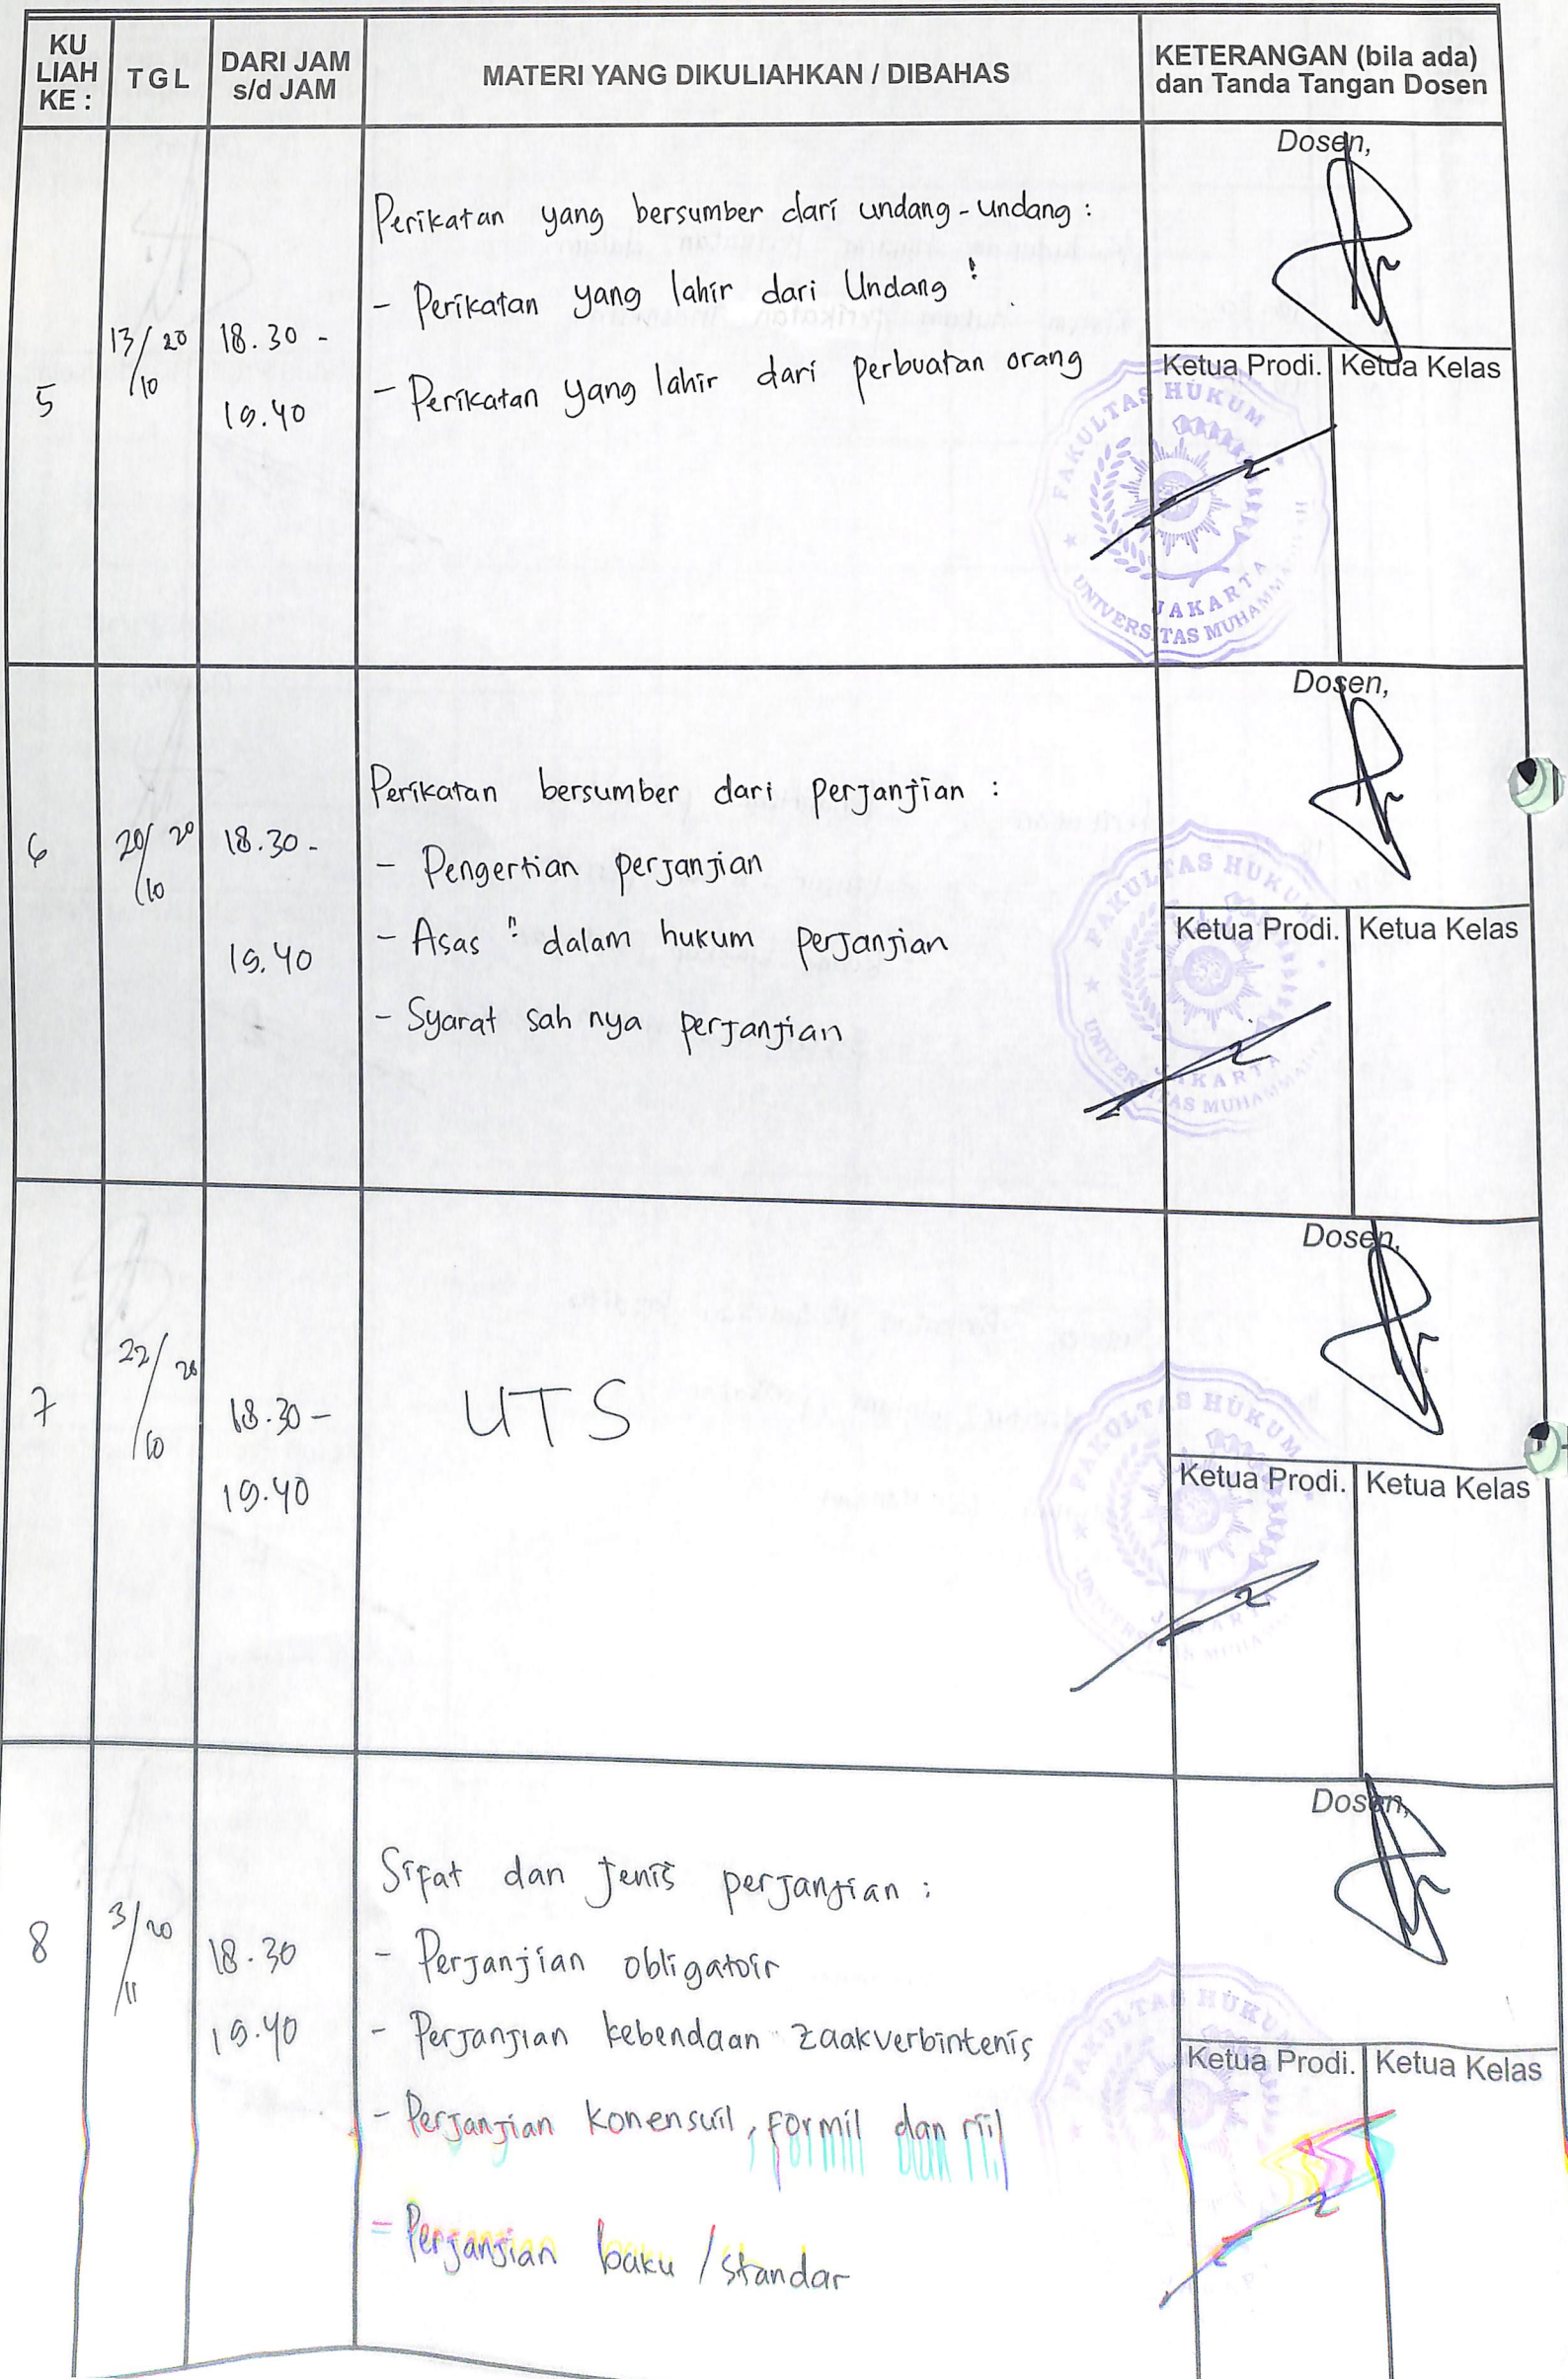 KU
LIAH
KE :
TGL
DARI JAM
s/d JAM
MATERI YANG DIKULIAHKAN / DIBAHAS
KETERANGAN (bila ada)
dan Tanda Tangan Dosen
5
13/10 20
18.30 -
19.40
Perikatan yang bersumber dari undang-undang :
- Perikatan yang lahir dari Undang"
- Perikatan yang lahir dari perbuatan orang
Dosen,
Ketua Prodi. Ketua Kelas
FAKULTAS HUKUM
JAKARTA
UNIVERSITAS MUHAMMA
6
20/10 20
18.30 -
19.40
Perikatan bersumber dari perjanjian :
- Pengertian perjanjian
- Asas" dalam hukum perjanjian
- Syarat sah nya perjanjian
Dosen,
Ketua Prodi. Ketua Kelas
FAKULTAS HUKUM
JAKARTA
UNIVERSITAS MUHAMMA
7
22/10 20
18.30 -
19.40
UTS
Dosen,
Ketua Prodi. Ketua Kelas
FAKULTAS HUKUM
JAKARTA
8
3/11 20
18.30
19.40
Sifat dan jenis perjanjian :
- Perjanjian obligatoir
- Perjanjian kebendaan zaakverbintenis
- Perjanjian konensuil, formil dan riil
- Perjanjian baku / standar
Dosen,
Ketua Prodi. Ketua Kelas
FAKULTAS HUKU